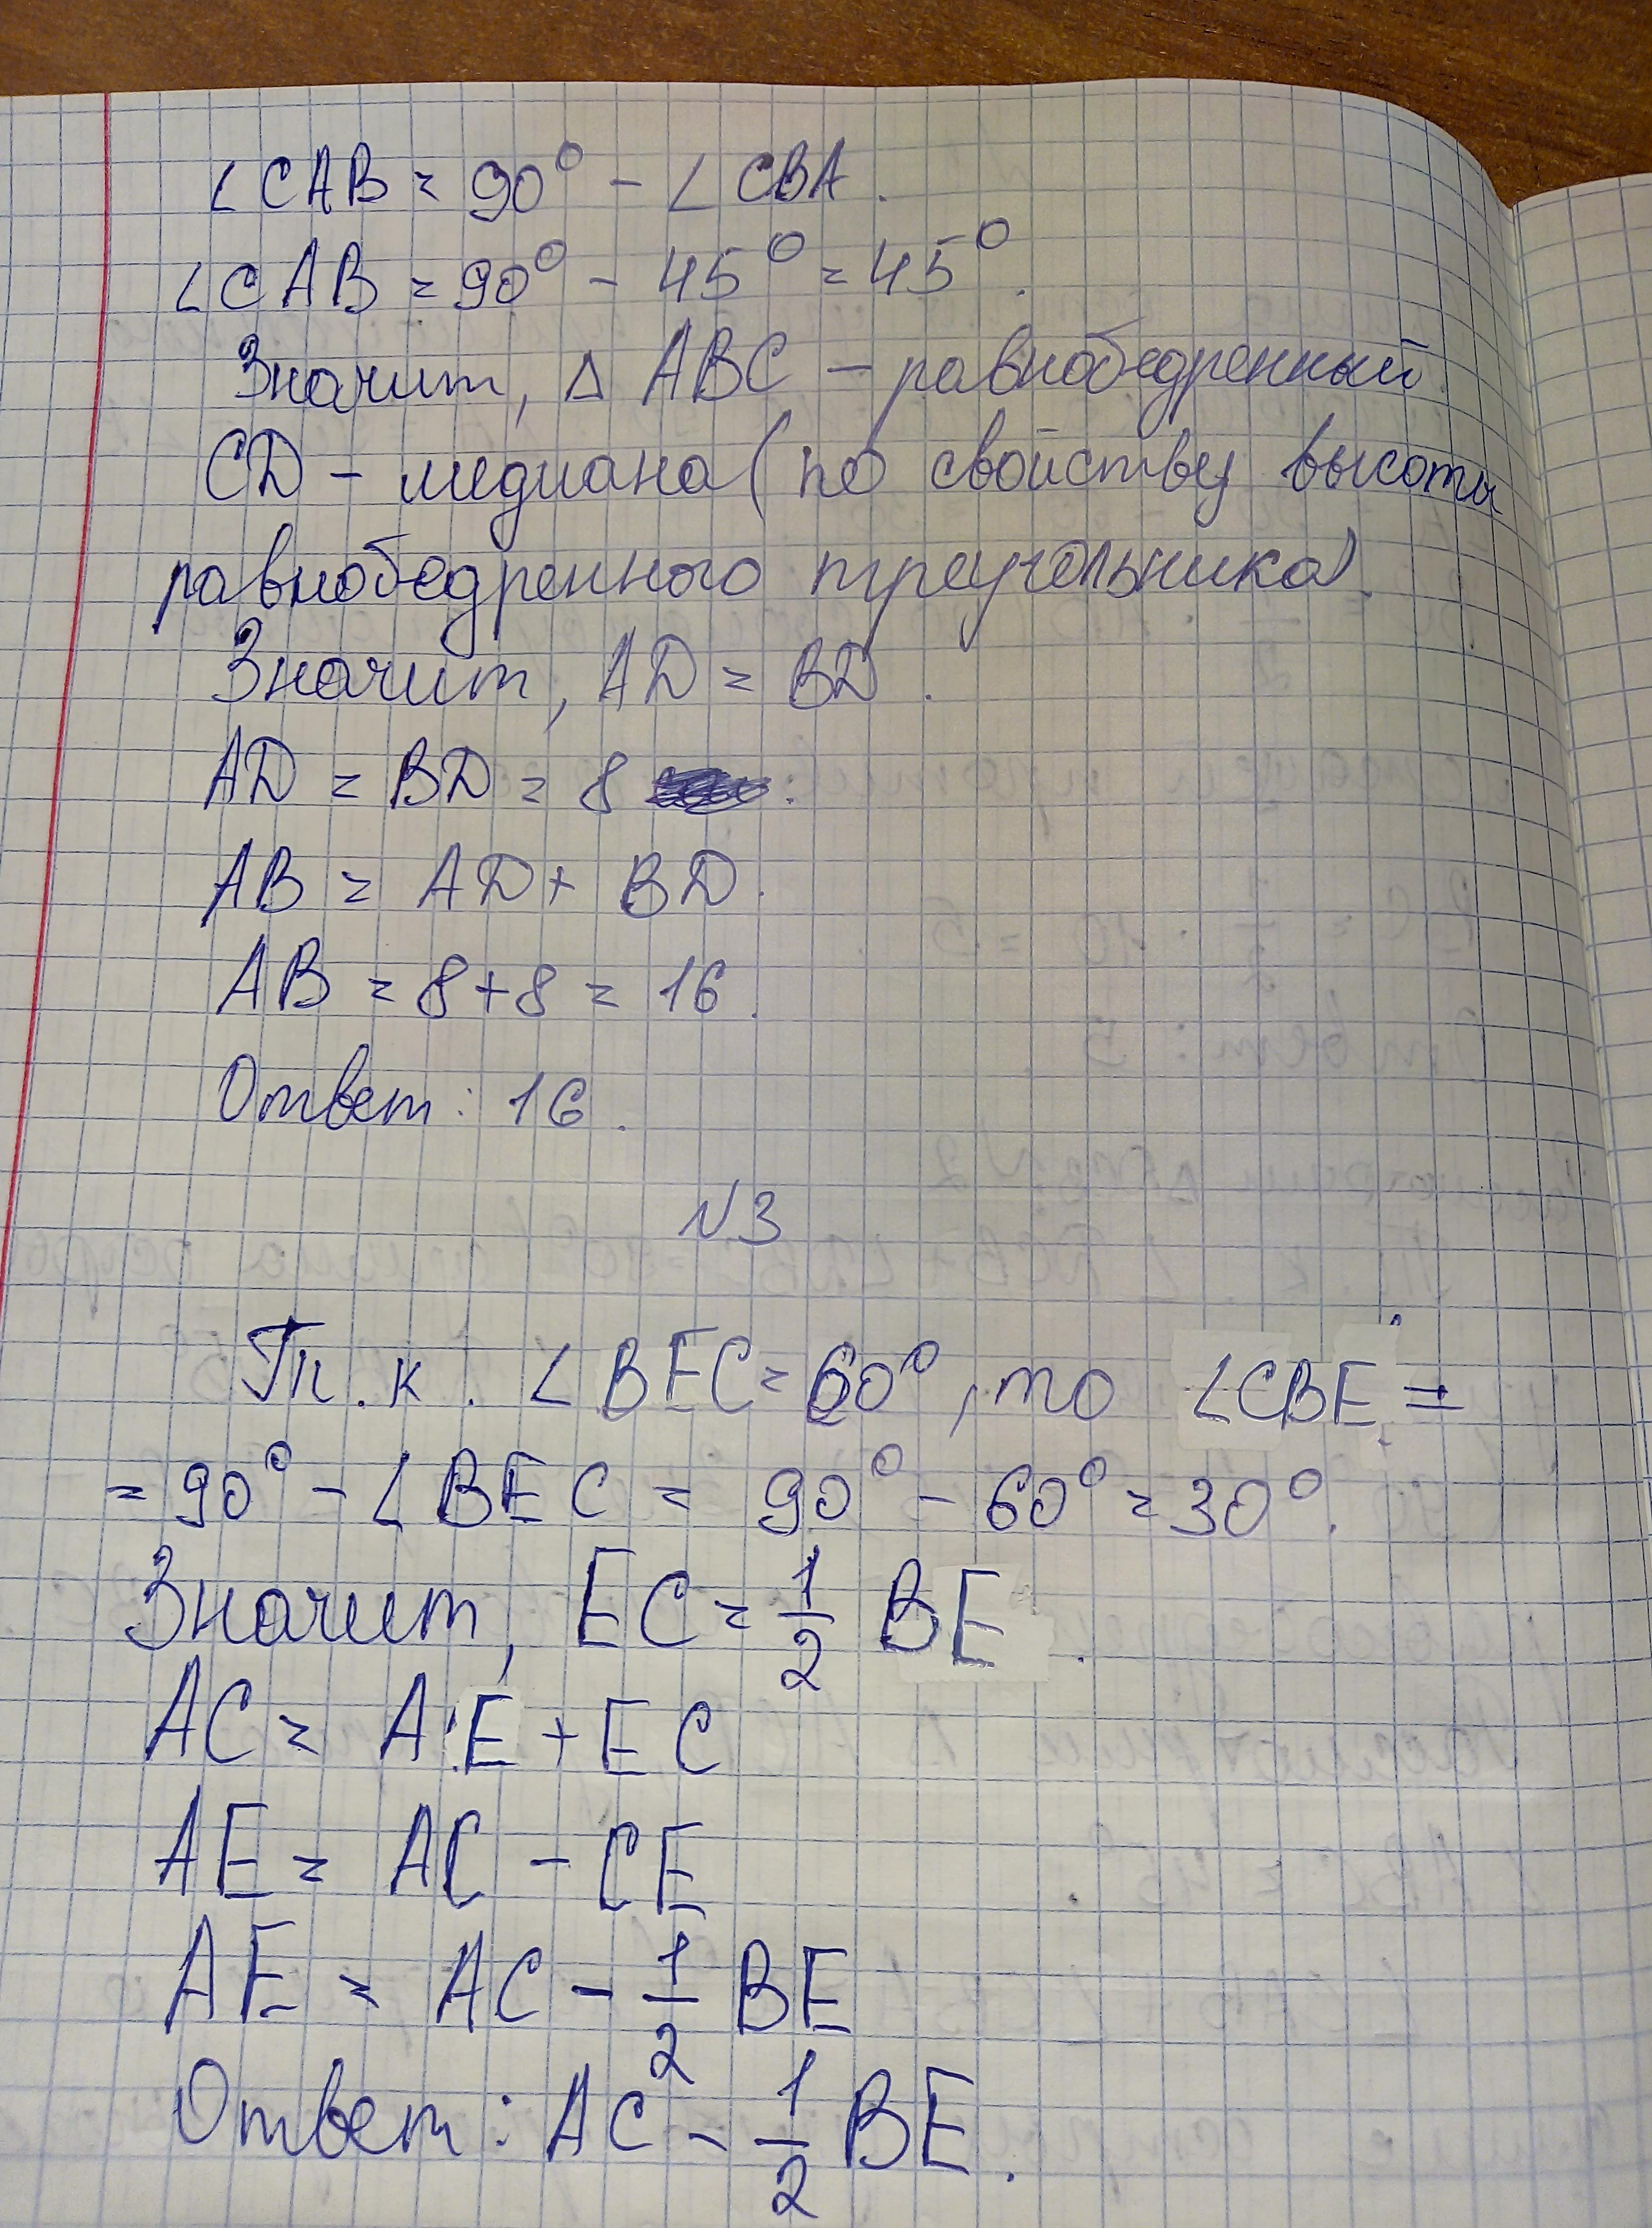 ∠CAB = 90° - ∠CBA.
∠CAB = 90° - 45° = 45°.
Значит, △ ABC - равнобедренный
CD - медиана (по свойству высоты
равнобедренного треугольника).
Значит, AD = BD.
AD = BD = 8.
AB = AD + BD.
AB = 8 + 8 = 16.
Ответ: 16.
№3
Т.к. ∠BEC = 60°, то ∠CBE =
= 90° - ∠BEC = 90° - 60° = 30°.
Значит, EC = 1/2 BE.
AC = AE + EC
AE = AC - CE
AE = AC - 1/2 BE
Ответ: AC - 1/2 BE.